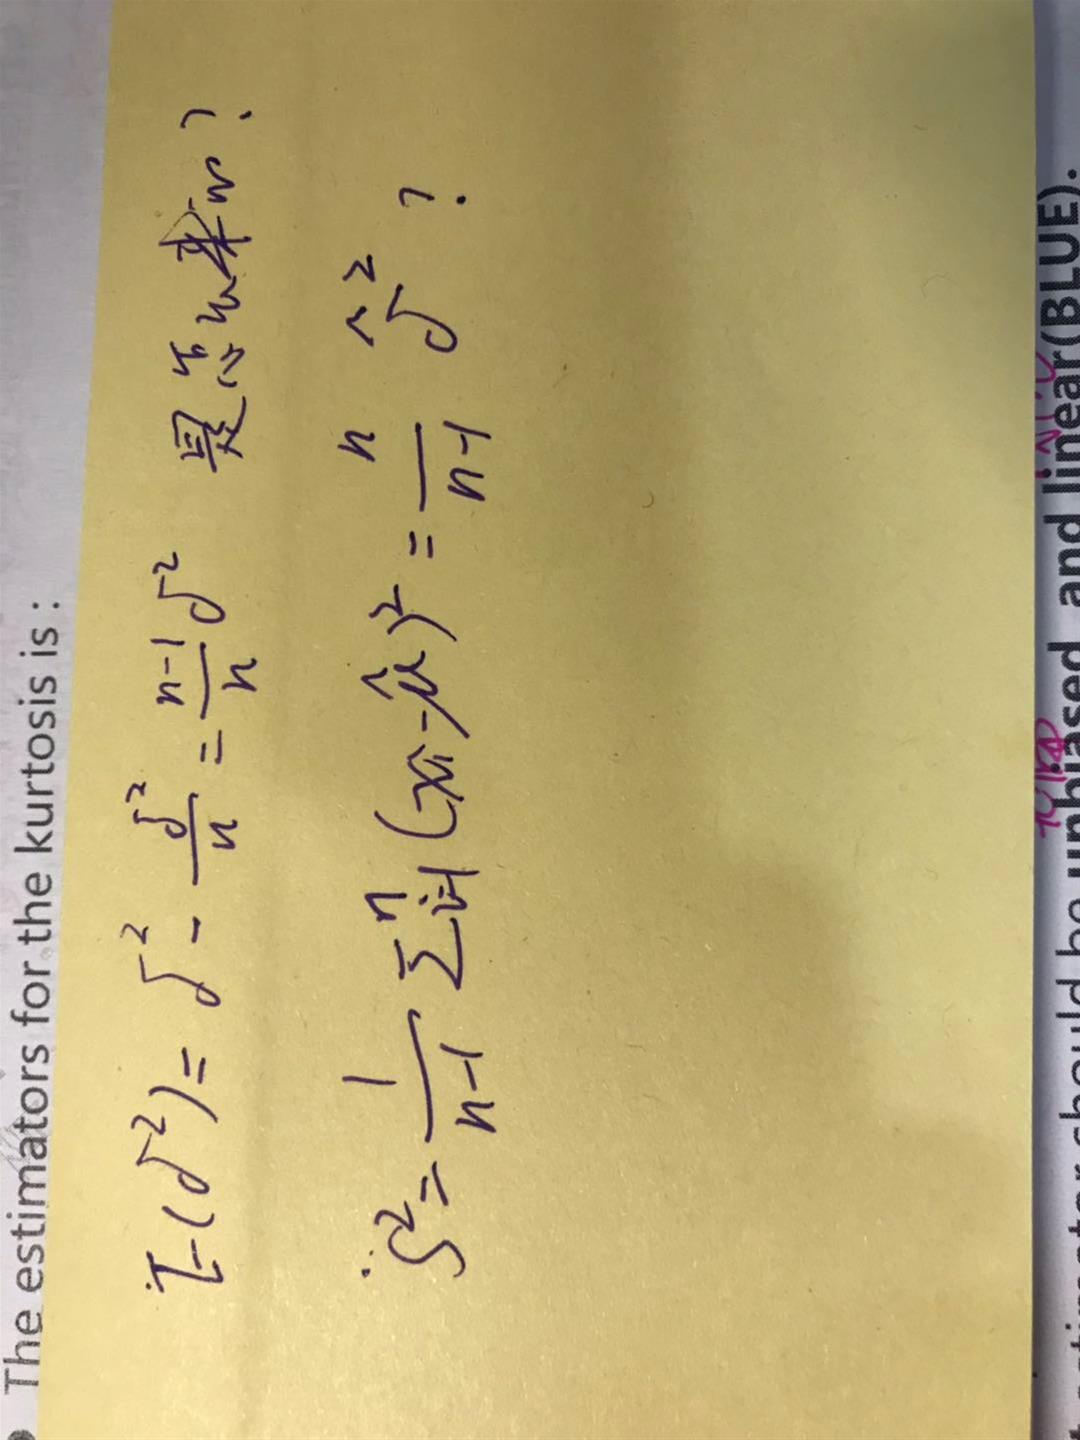 The estimators for the kurtosis is :
E(σ²) = σ² - σ²/n = (n-1)/n σ² 是怎么来的?
S² = 1/(n-1) Σⁿᵢ₌₁ (xᵢ - μ̂)² = n/(n-1) σ̂² ?
estimator should be unbiased and linear (BLUE).